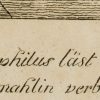 philus läst
mahlin verb